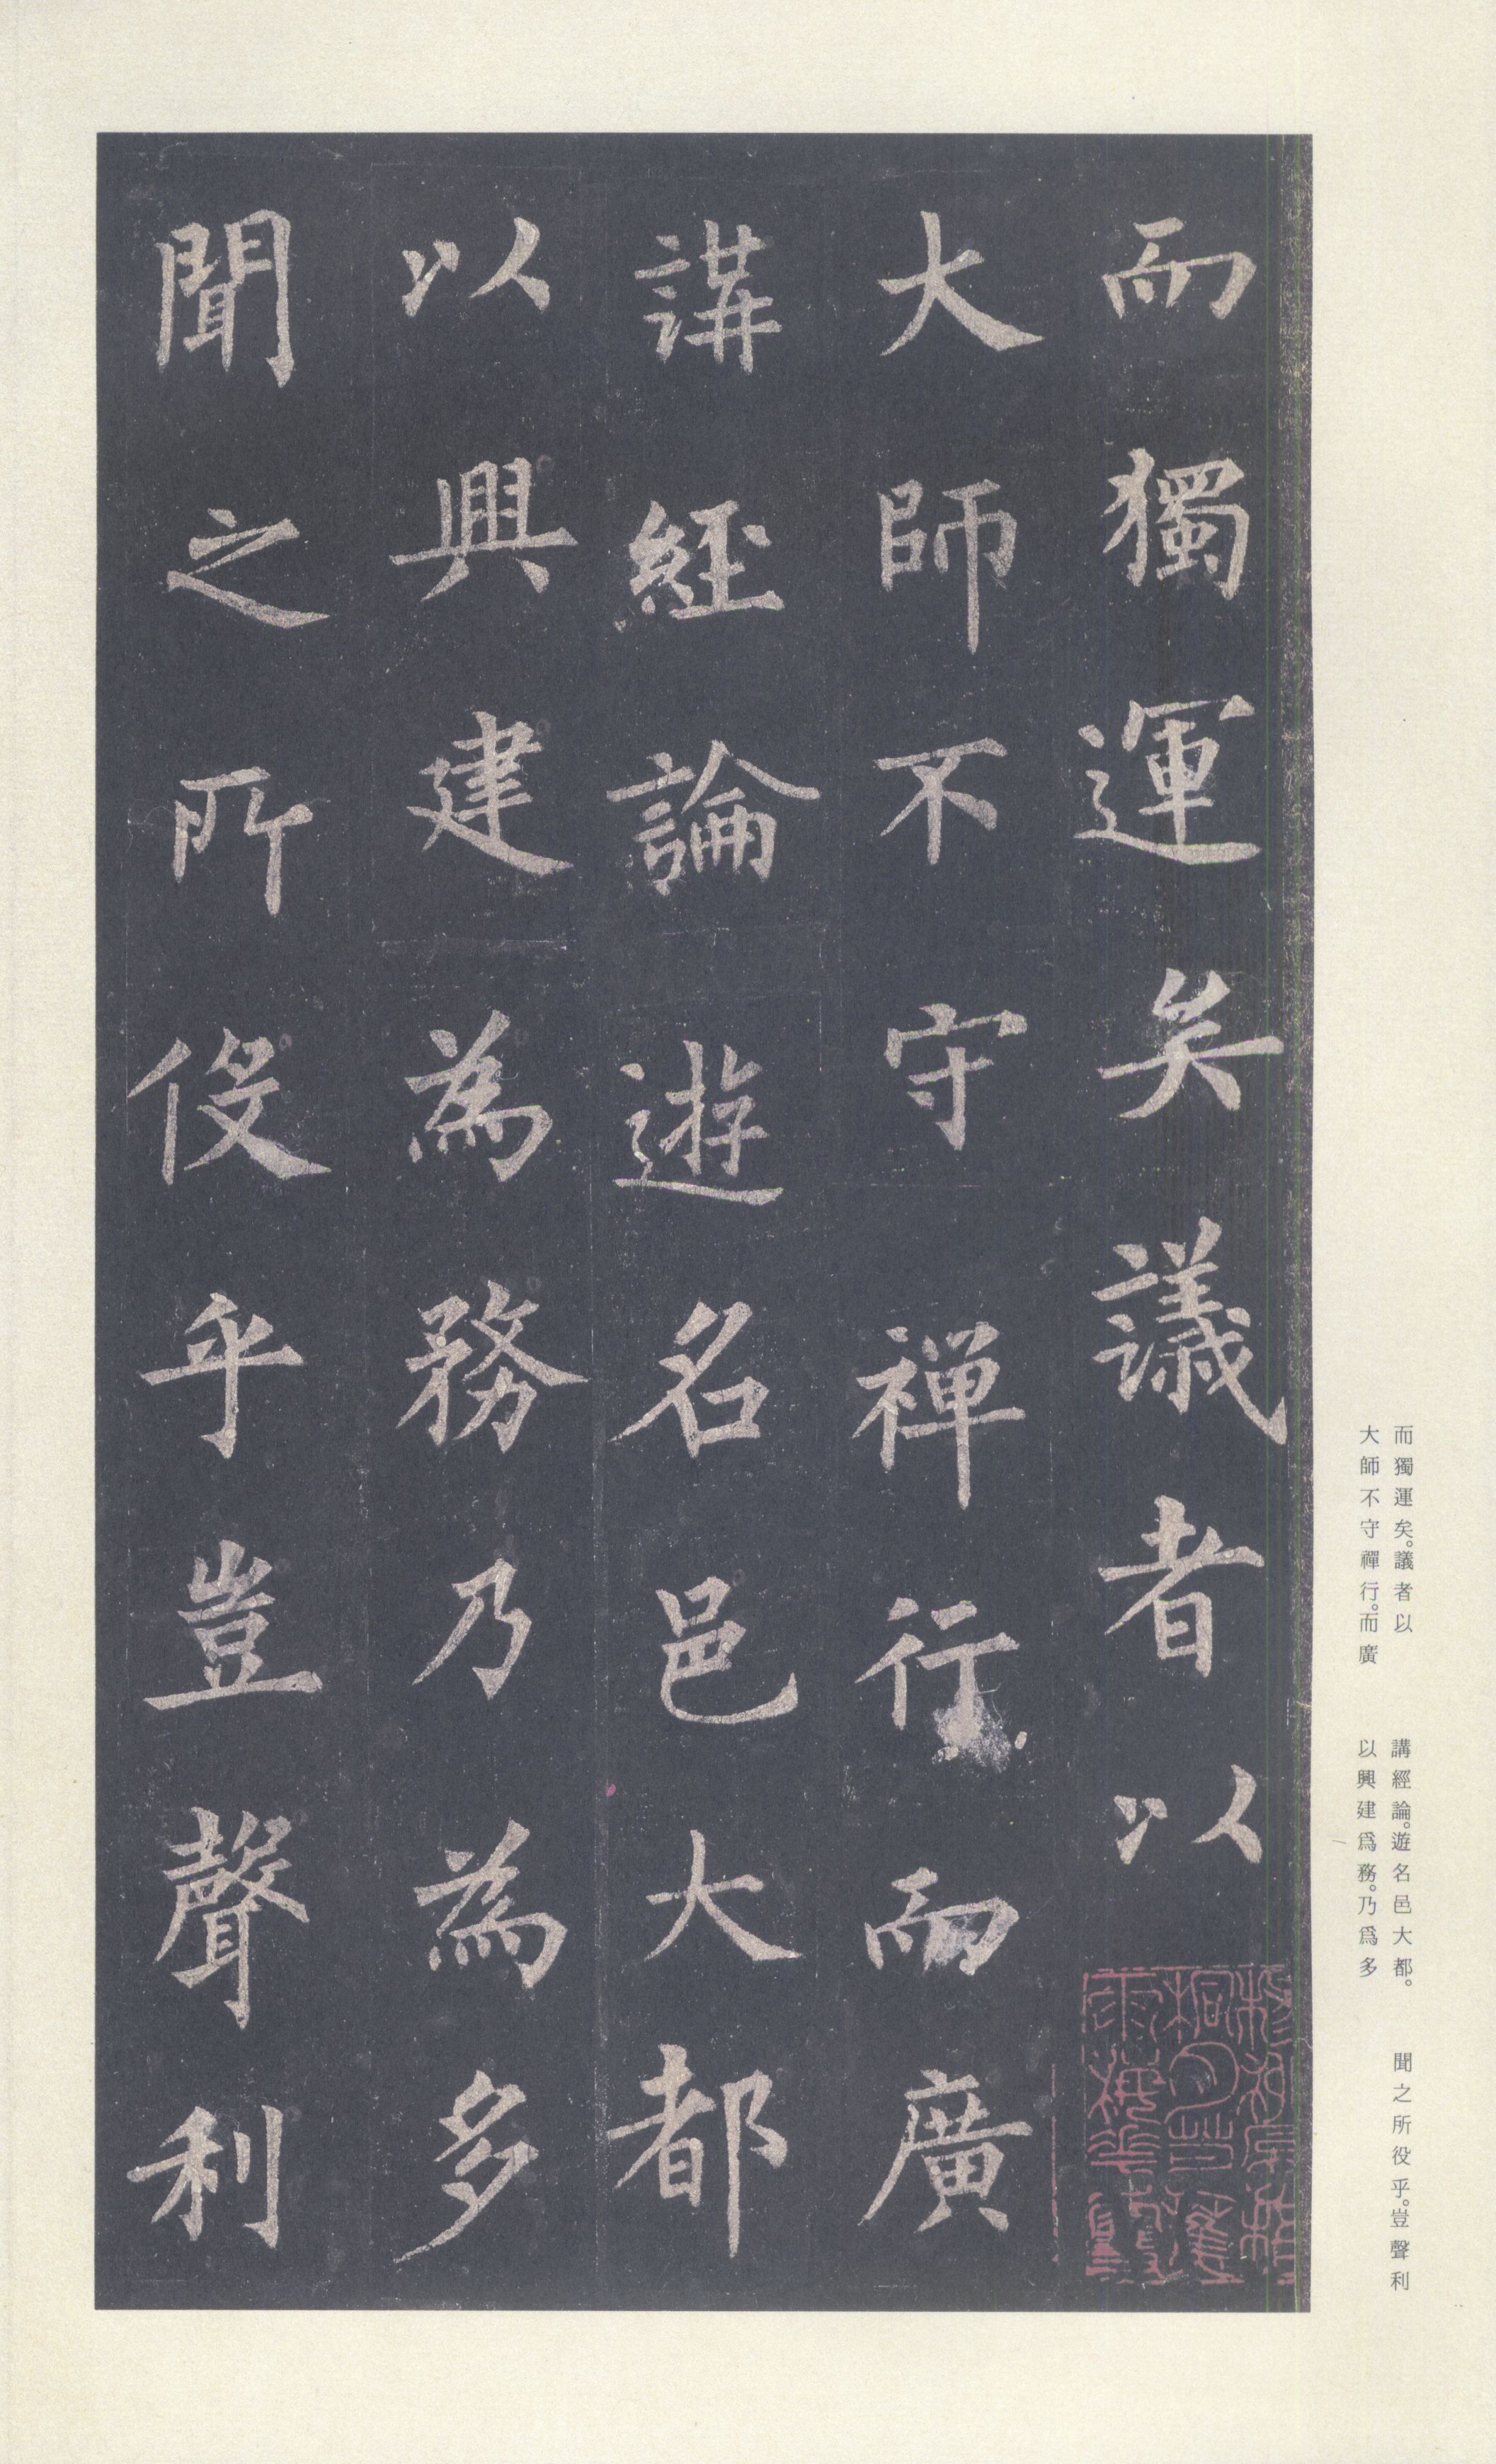 而獨運矣議者以
大師不守禪行而廣
講經論遊名邑大都
以興建為務乃為多
聞之所伇乎豈聲利
而獨運矣。議者以
大師不守禪行。而廣
講經論。遊名邑大都。
以興建爲務。乃爲多
聞之所役乎。豈聲利